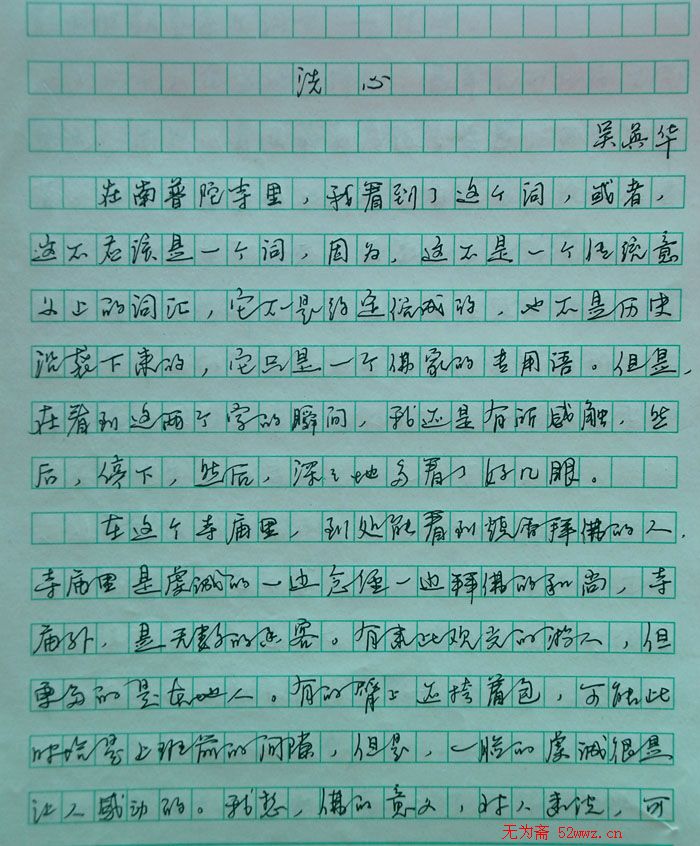 洗心
吴英华
在南普陀寺里，我看到了这个词，或者，
这不应该是一个词，因为，这不是一个传统意
义上的词汇，它不是约定俗成的，也不是历史
沿袭下来的，它只是一个佛家的专用语。但是，
在看到这两个字的瞬间，我还是有所感触，然
后，停下，然后，深深地多看了好几眼。
在这个寺庙里，到处能看到烧香拜佛的人，
寺庙里是虔诚的一边念经一边拜佛的和尚，寺
庙外，是无数的香客。有来此观光的游人，但
更多的是本地人。有的臂上还挎着包，可能此
时恰是上班前的间隙，但是，一脸的虔诚很是
让人感动的。我想，佛的意义，对人来说，可
无为斋 52wwz.cn